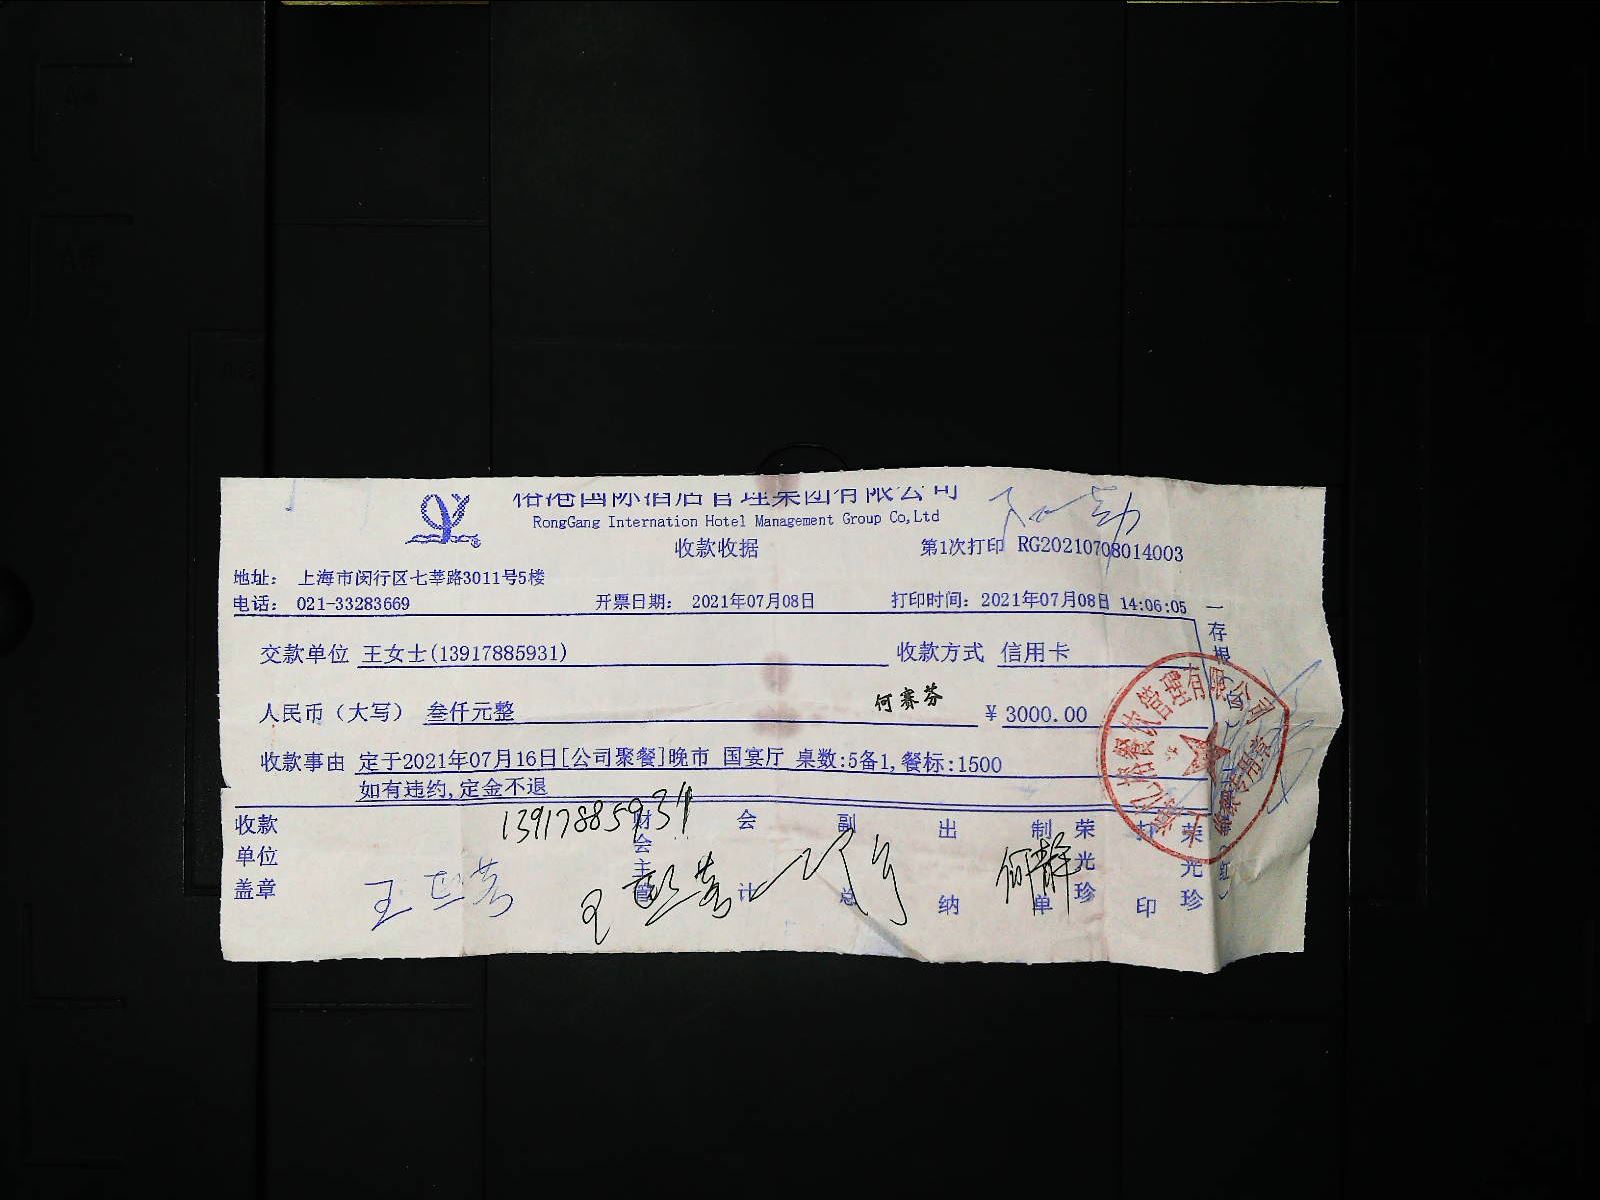 榕港国际酒店管理集团有限公司
RongGang Internation Hotel Management Group Co,Ltd
收款收据
第1次打印 RG20210708014003
地址： 上海市闵行区七莘路3011号5楼
电话： 021-33283669 开票日期： 2021年07月08日 打印时间：2021年07月08日 14:06:05
交款单位 王女士(13917885931) 收款方式 信用卡
何赛芬
人民币（大写） 叁仟元整 ¥ 3000.00
收款事由 定于2021年07月16日[公司聚餐]晚市 国宴厅 桌数:5备1,餐标:1500
如有违约,定金不退
13917885931
收款单位盖章 财会主管 会计 副总 出纳 制单 荣光珍 打印 荣光珍
何静
一存根